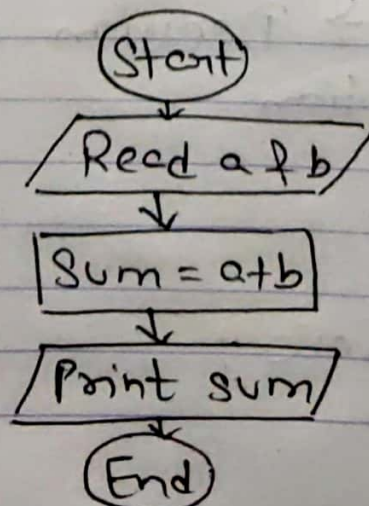 Start
Read a & b
Sum = a+b
Print sum
End